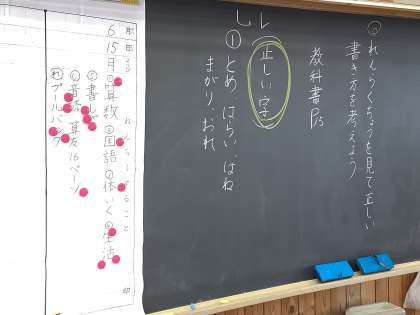 れんらくちょうを見て正しい
書き方を考えよう
教科書
正しい字
①とめ、はらい、はね
まがり、おれ
れんらくすること
6 15 月 ①算数 ②国語 ③体いく ④生活
⑤書しゃ
⑥音楽 算友16ページ
プールバッグ
印